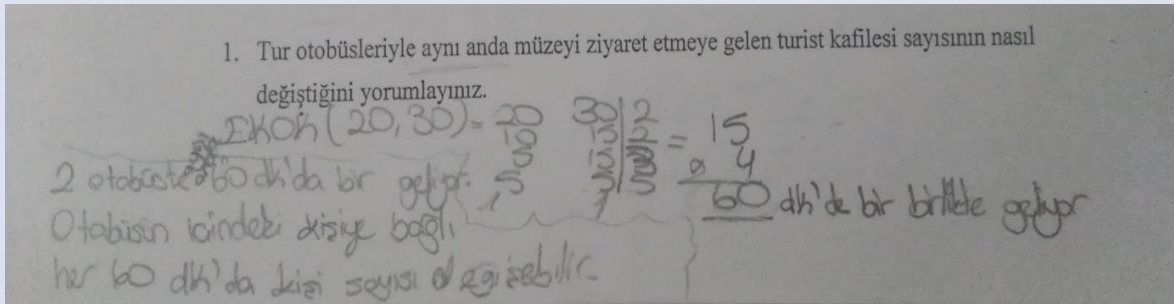 1. Tur otobüsleriyle aynı anda müzeyi ziyaret etmeye gelen turist kafilesi sayısının nasıl
değiştiğini yorumlayınız.
EKOK (20,30) = 20 30 | 2
10 15 | 2
5 15
5 5 | 5
1 1
= 15
4
60 dk'da bir birlikte geliyor
2 otobüste 60 dk'da bir geliyor.
Otobüsün içindeki kişiye bağlı
her 60 dk'da kişi sayısı değişebilir.